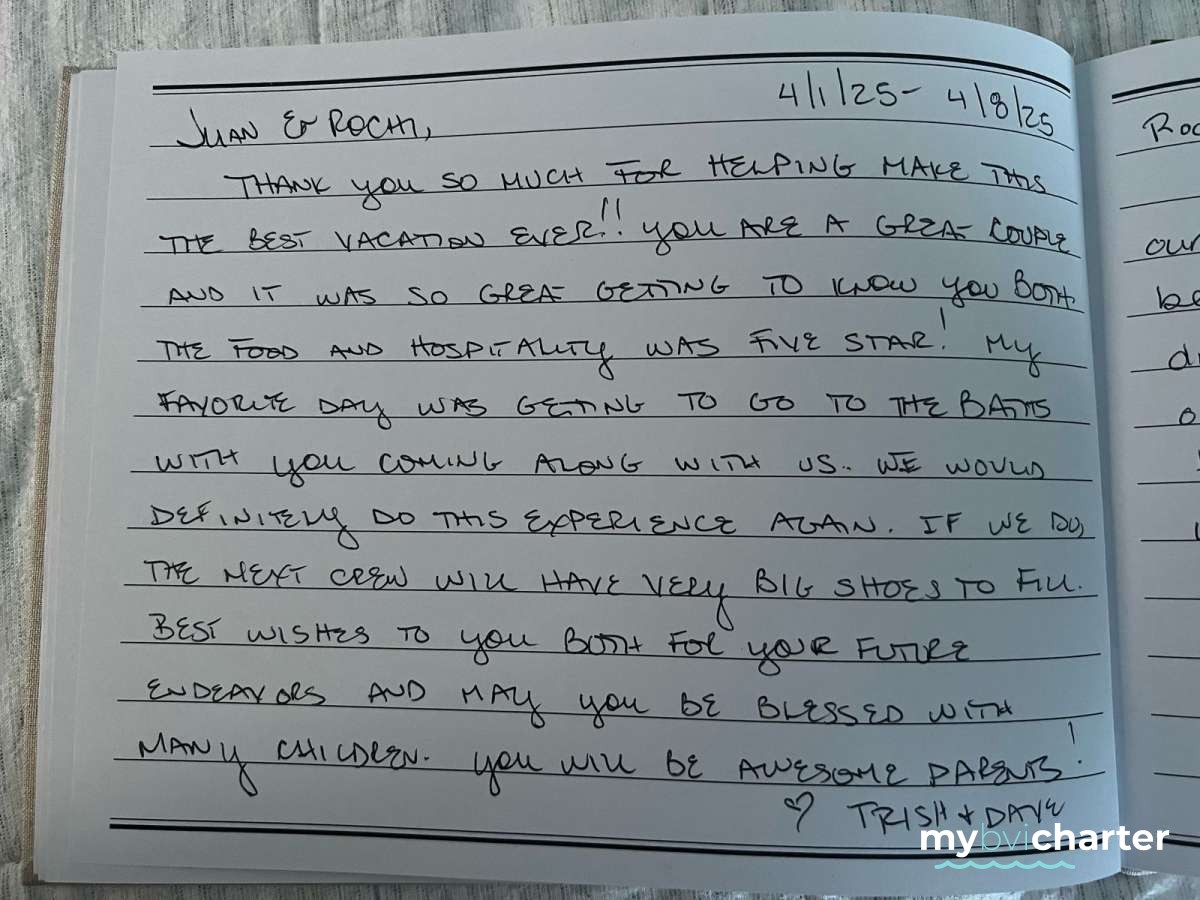 4/1/25- 4/8/25
JUAN & ROCHI,
THANK YOU SO MUCH FOR HELPING MAKE THIS
THE BEST VACATION EVER!! YOU ARE A GREAT COUPLE
AND IT WAS SO GREAT GETTING TO KNOW YOU BOTH.
THE FOOD AND HOSPITALITY WAS FIVE STAR! MY
FAVORITE DAY WAS GETTING TO GO TO THE BATHS
WITH YOU COMING ALONG WITH US. WE WOULD
DEFINITELY DO THIS EXPERIENCE AGAIN. IF WE DO,
THE NEXT CREW WILL HAVE VERY BIG SHOES TO FILL.
BEST WISHES TO YOU BOTH FOR YOUR FUTURE
ENDEAVORS AND MAY YOU BE BLESSED WITH
MANY CHILDREN. YOU WILL BE AWESOME PARENTS!
♡ TRISH + DAVE
mybvicharter
our